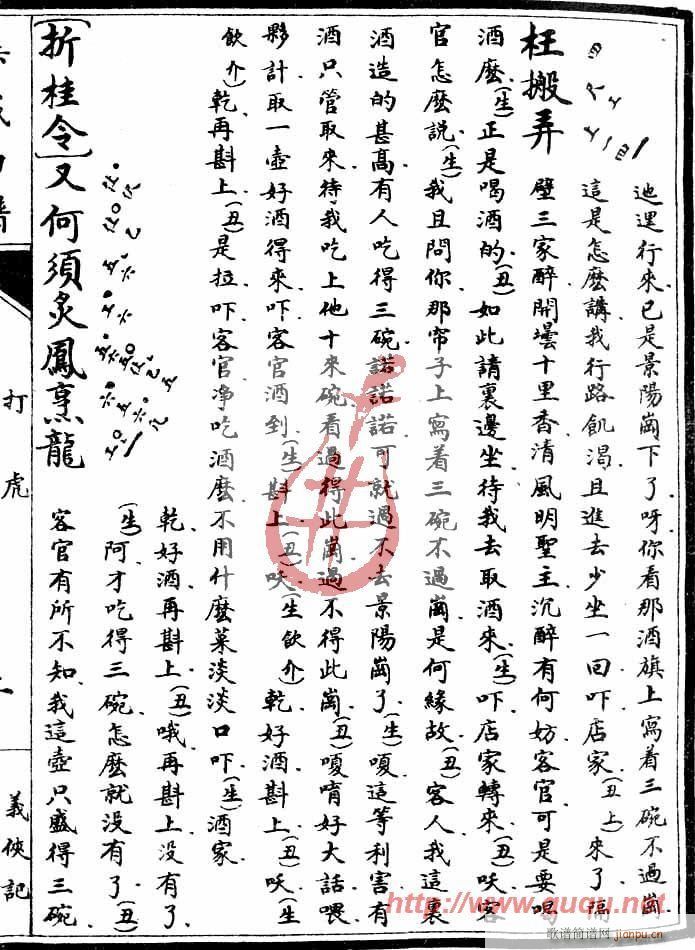 枉搬弄
迆𨓦行來已是景陽崗下了呀你看那酒旗上寫着三碗不過崗
這是怎麼講我行路飢渴且進去少坐一回吓店家(丑上)來了隔
壁三家醉開壜十里香清風明聖主沉醉有何妨客官可是要喝
酒麼(生)正是喝酒的(丑)如此請裏邊坐待我去取酒來(生)吓店家轉來(丑)㕭客
官怎麼說(生)我且問你那帘子上寫着三碗不過崗是何緣故(丑)客人我這裏
酒造的甚高有人吃得三碗諾諾諾可就過不去景陽崗了(生)嗄這等利害有
酒只管取來待我吃上他十來碗看過得此崗過不得此崗(丑)嗄唷好大話喂
夥計取一壺好酒得來吓客官酒到(生)斟上(丑)㕭(生飲介)乾好酒斟上(丑)㕭(生
飲介)乾再斟上(丑)是拉吓客官净吃酒麼不用什麼菜淡淡口吓(生)酒家
乾好酒再斟上(丑)哦再斟上没有了
(生)阿才吃得三碗怎麼就没有了(丑)
客官有所不知我這壺只盛得三碗
[折桂令]又何須炙鳳烹龍
打虎
義俠記
http://www.guqu.net
歌谱简谱网
jianpu.cn